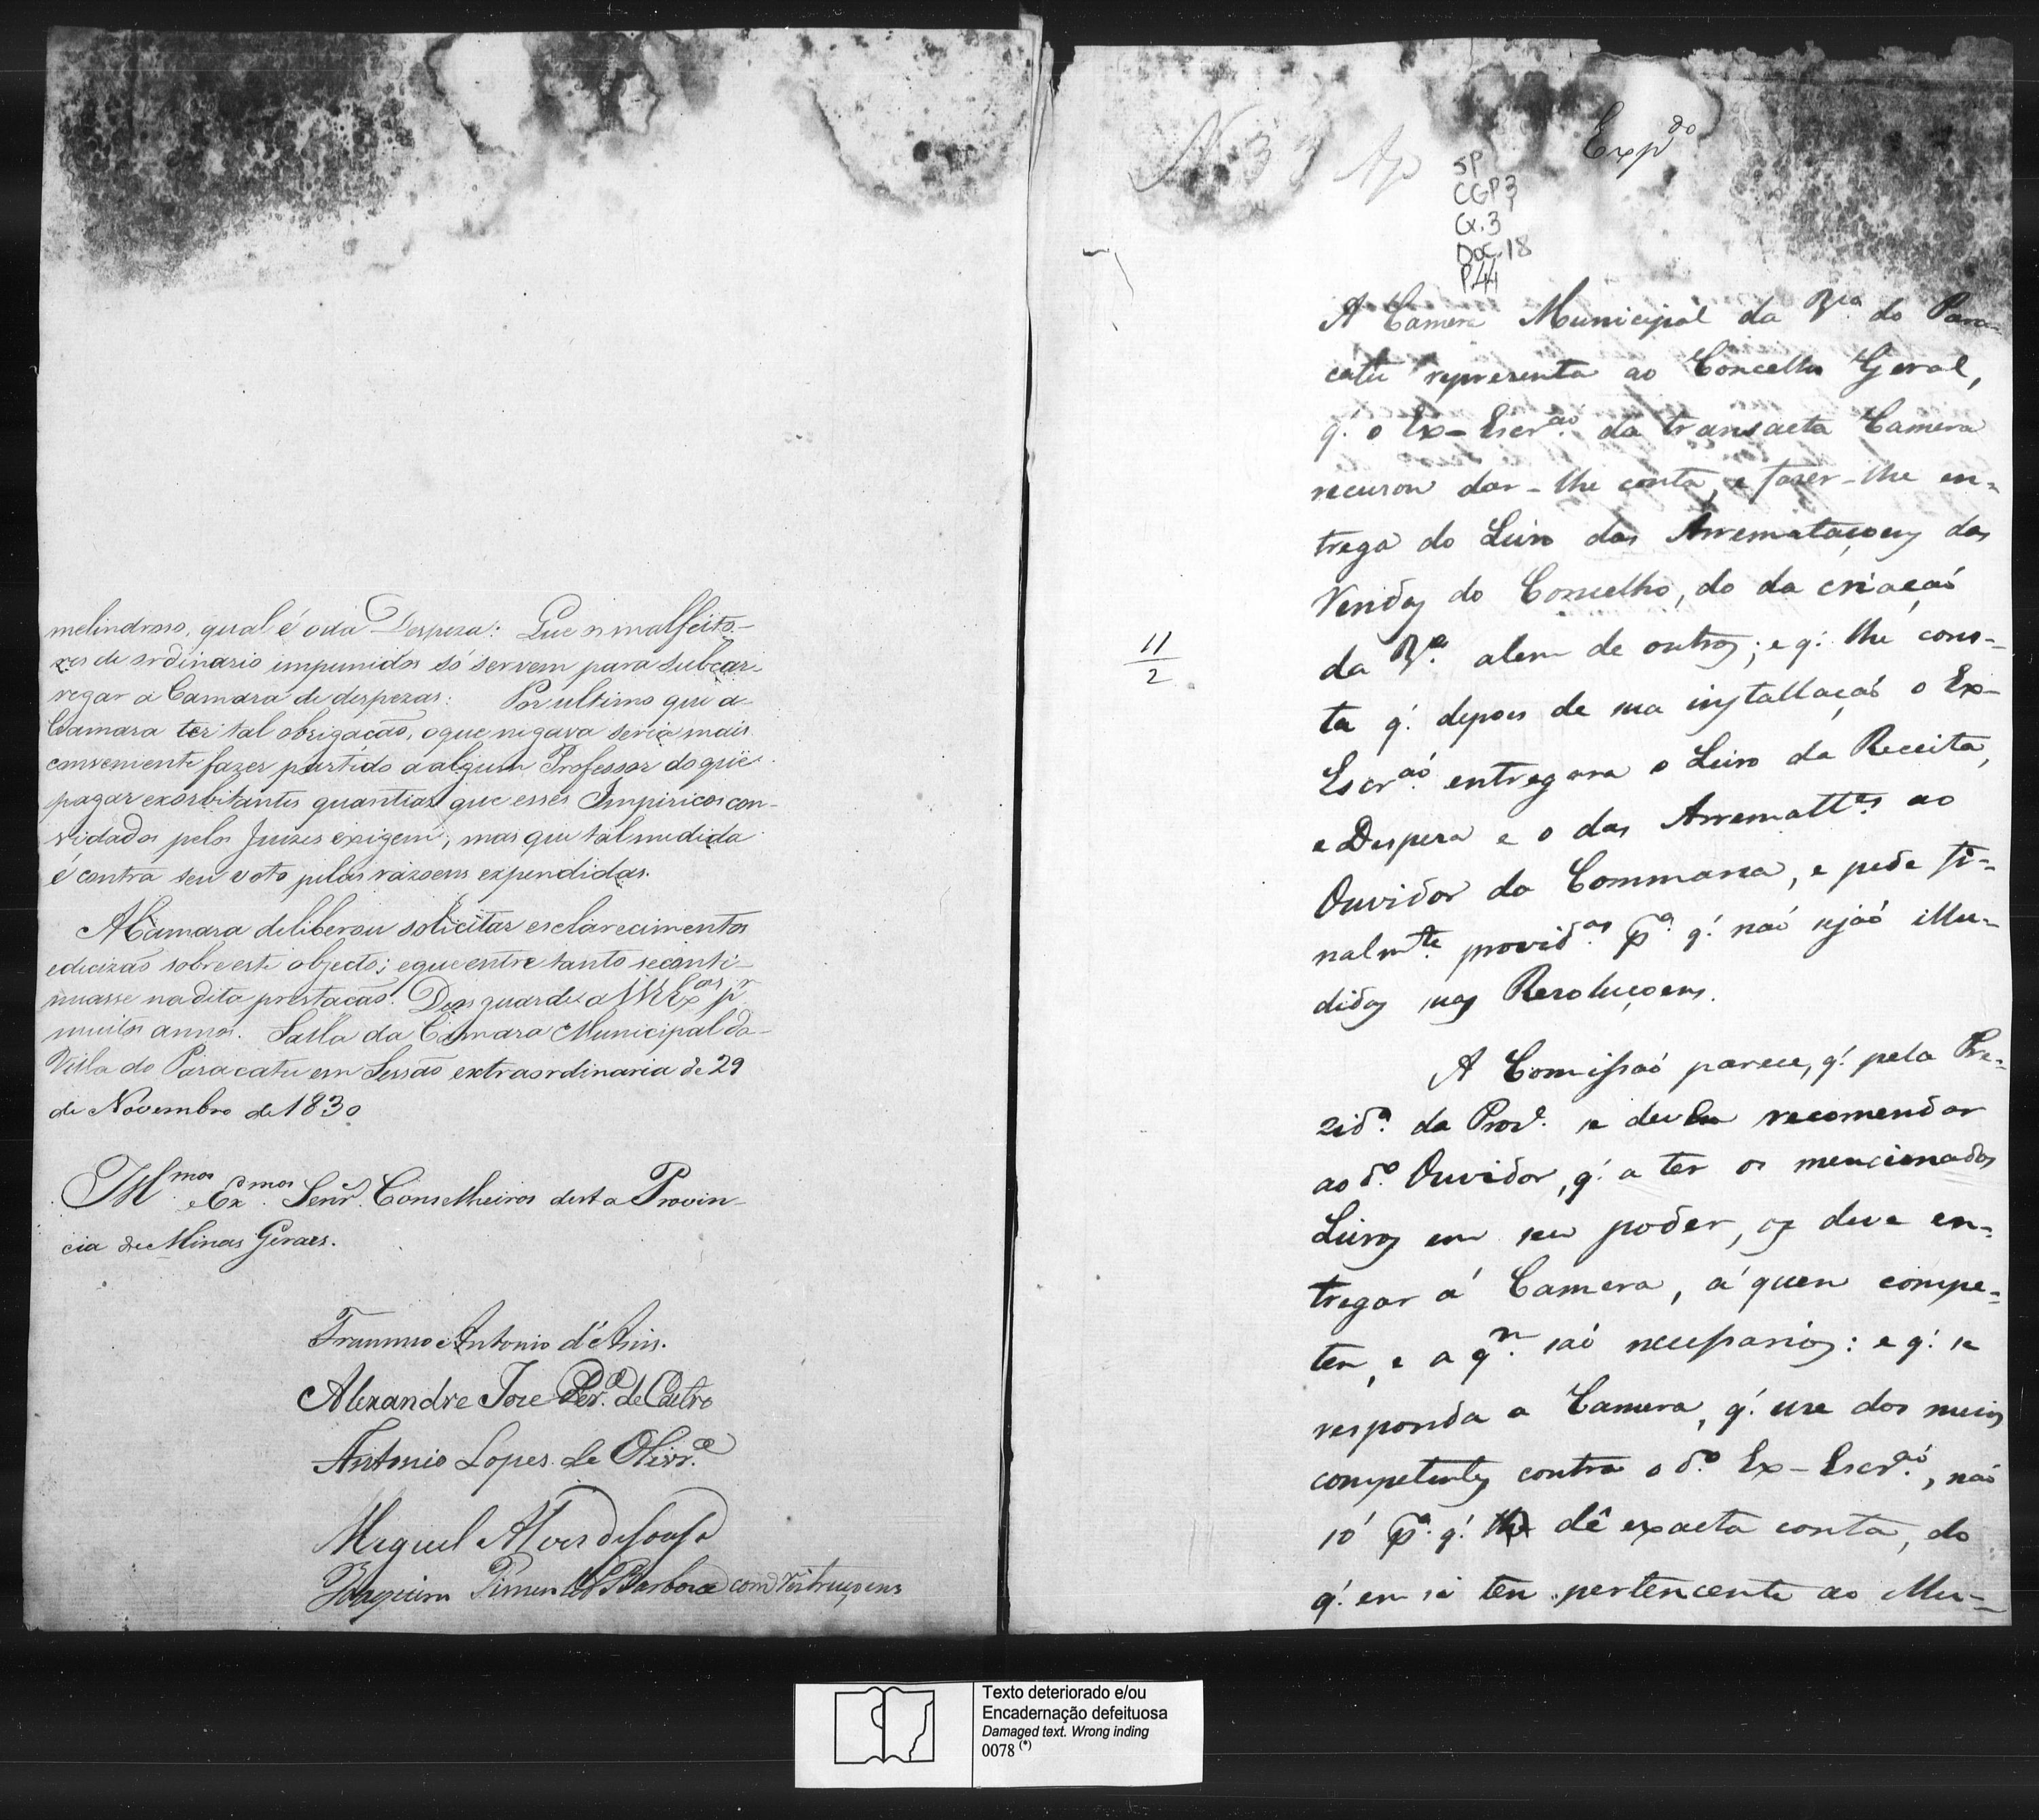 melindroso, qual é o da Despeza: Que os malfeito-
res de ordinario impunidos só servem para subcar-
regar a Camara de despezas: Por ultimo que a
Camara ter tal obrigação, o que negava seria mais
conveniente fazer partido a algum Professor do que
pagar exorbitantes quantias que esses Impiricos con-
vidados pelos Juizes exigem, mas que tal medida
é contra seu voto pelas razoens expendidas.
A Camara deliberou solicitar esclarecimentos
e decizão sobre este objecto; e que entre tanto se conti-
nuasse na dita prestação. Deos guarde a VV Ex.as p.r
muitos annos. Salla da Camara Municipal da
Villa do Paracatu em Sessão extraordinaria de 29
de Novembro de 1830
Ill.mos e Ex.mos Senr. Conselheiros desta Provin-
cia de Minas Geraes.
Francisco Antonio d'Assis.
Alexandre Joze Per.a de Castro
Antonio Lopes de Olivr.a
Miguel Alves de Souza
Joaquim Pimentel Barboza com restricçoens
N. 3
Exp.do
SP
CGP3
Cx.3
Doc.18
P.44
A Camera Municipal da V.a do Para-
catu representa ao Concelho Geral,
q.' o Ex-Escr.aõ da transacta Camera
recusou dar-lhe conta, e fazer-lhe en-
trega do Livro das Arremataçoens das
Rendas do Concelho, do da criaçaõ
da V.a alem de outros; e q.' lhe cons-
ta q.' depois de sua installaçaõ o Ex-
Escr.aõ entregara o Livro da Receita,
e Despeza e o das Arrematt.es ao
Ouvidor da Commarca, e pede fi-
nalm.te provid.as p.a q.' naõ sejaõ illu-
didas suas Resoluçoens.
11
2
A Comissaõ parece, q.' pela Pre-
zid.a da Prov.a se deve recomendar
ao d.o Ouvidor, q.' a ter os mencionados
Livros em seu poder, os deve en-
tregar á Camera, á quem compe-
tem, e a q.m saõ necessarios: e q.' se
responda a Camera, q.' use dos meios
competentes contra o d.o Ex-Escr.aõ, naõ
só p.a q.' lhe dê exacta conta, do
q.' em si tem pertencente ao Mu-
Texto deteriorado e/ou
Encadernação defeituosa
Damaged text. Wrong inding
0078 (*)